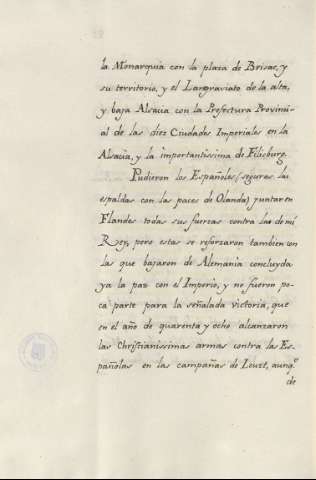 la Monarquia con la plaza de Brisac, y
su territorio, y el Langraviato de la alta,
y baja Alsacia con la Prefectura Provinci-
al de las diez Ciudades Imperiales en la
Alsacia, y la importantissima de Filisburg.
Pudieron los Españoles (seguras las
espaldas con las paces de Olanda) juntar en
Flandes todas sus fuerzas contra las de mi
Rey, pero estas se reforzaron tambien con
las que bajaron de Alemania concluyda
ya la paz con el Imperio, y no fueron po-
ca parte para la señalada victoria, que
en el año de quarenta y ocho alcanzaron
las Christianissimas armas contra las Es-
pañolas en las campañas de Leust, aunq.º
de